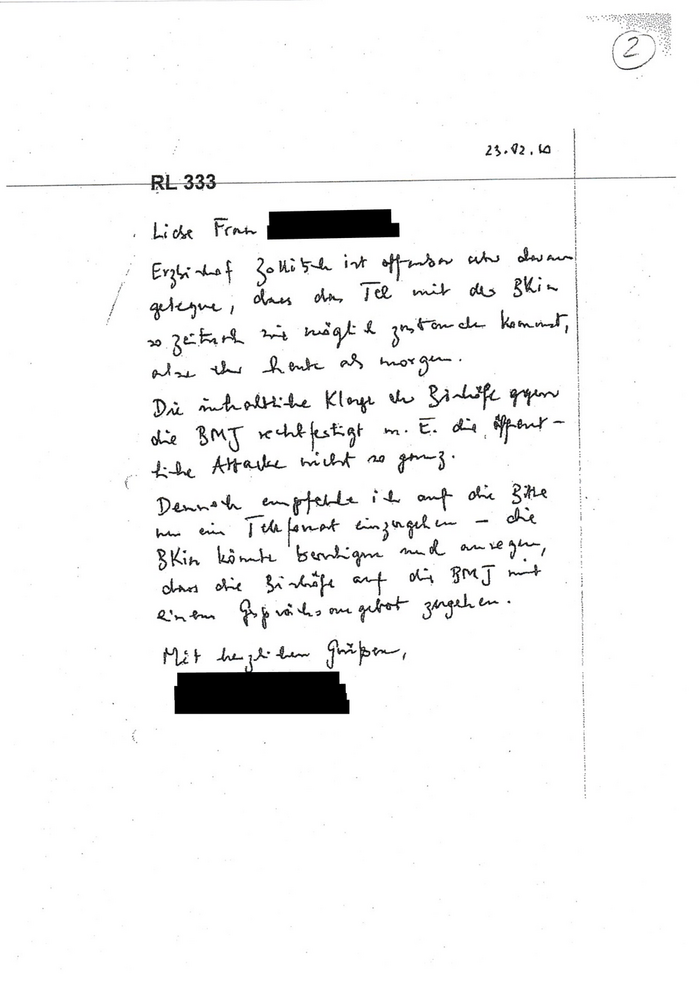 2
23.02.10
RL 333
Liebe Frau
Erzbischof Zollitsch ist offenbar sehr daran
gelegen, dass das Tel mit der BKin
so zeitnah wie möglich zustande kommt,
also eher heute als morgen.
Die inhaltliche Klage der Bischöfe gegen
die BMJ rechtfertigt m. E. die öffent-
liche Attacke nicht so ganz.
Dennoch empfehle ich auf die Bitte
um ein Telefonat einzugehen – die
BKin könnte beruhigen und anregen,
dass die Bischöfe auf die BMJ mit
einem Gesprächsangebot zugehen.
Mit herzlichen Grüßen,